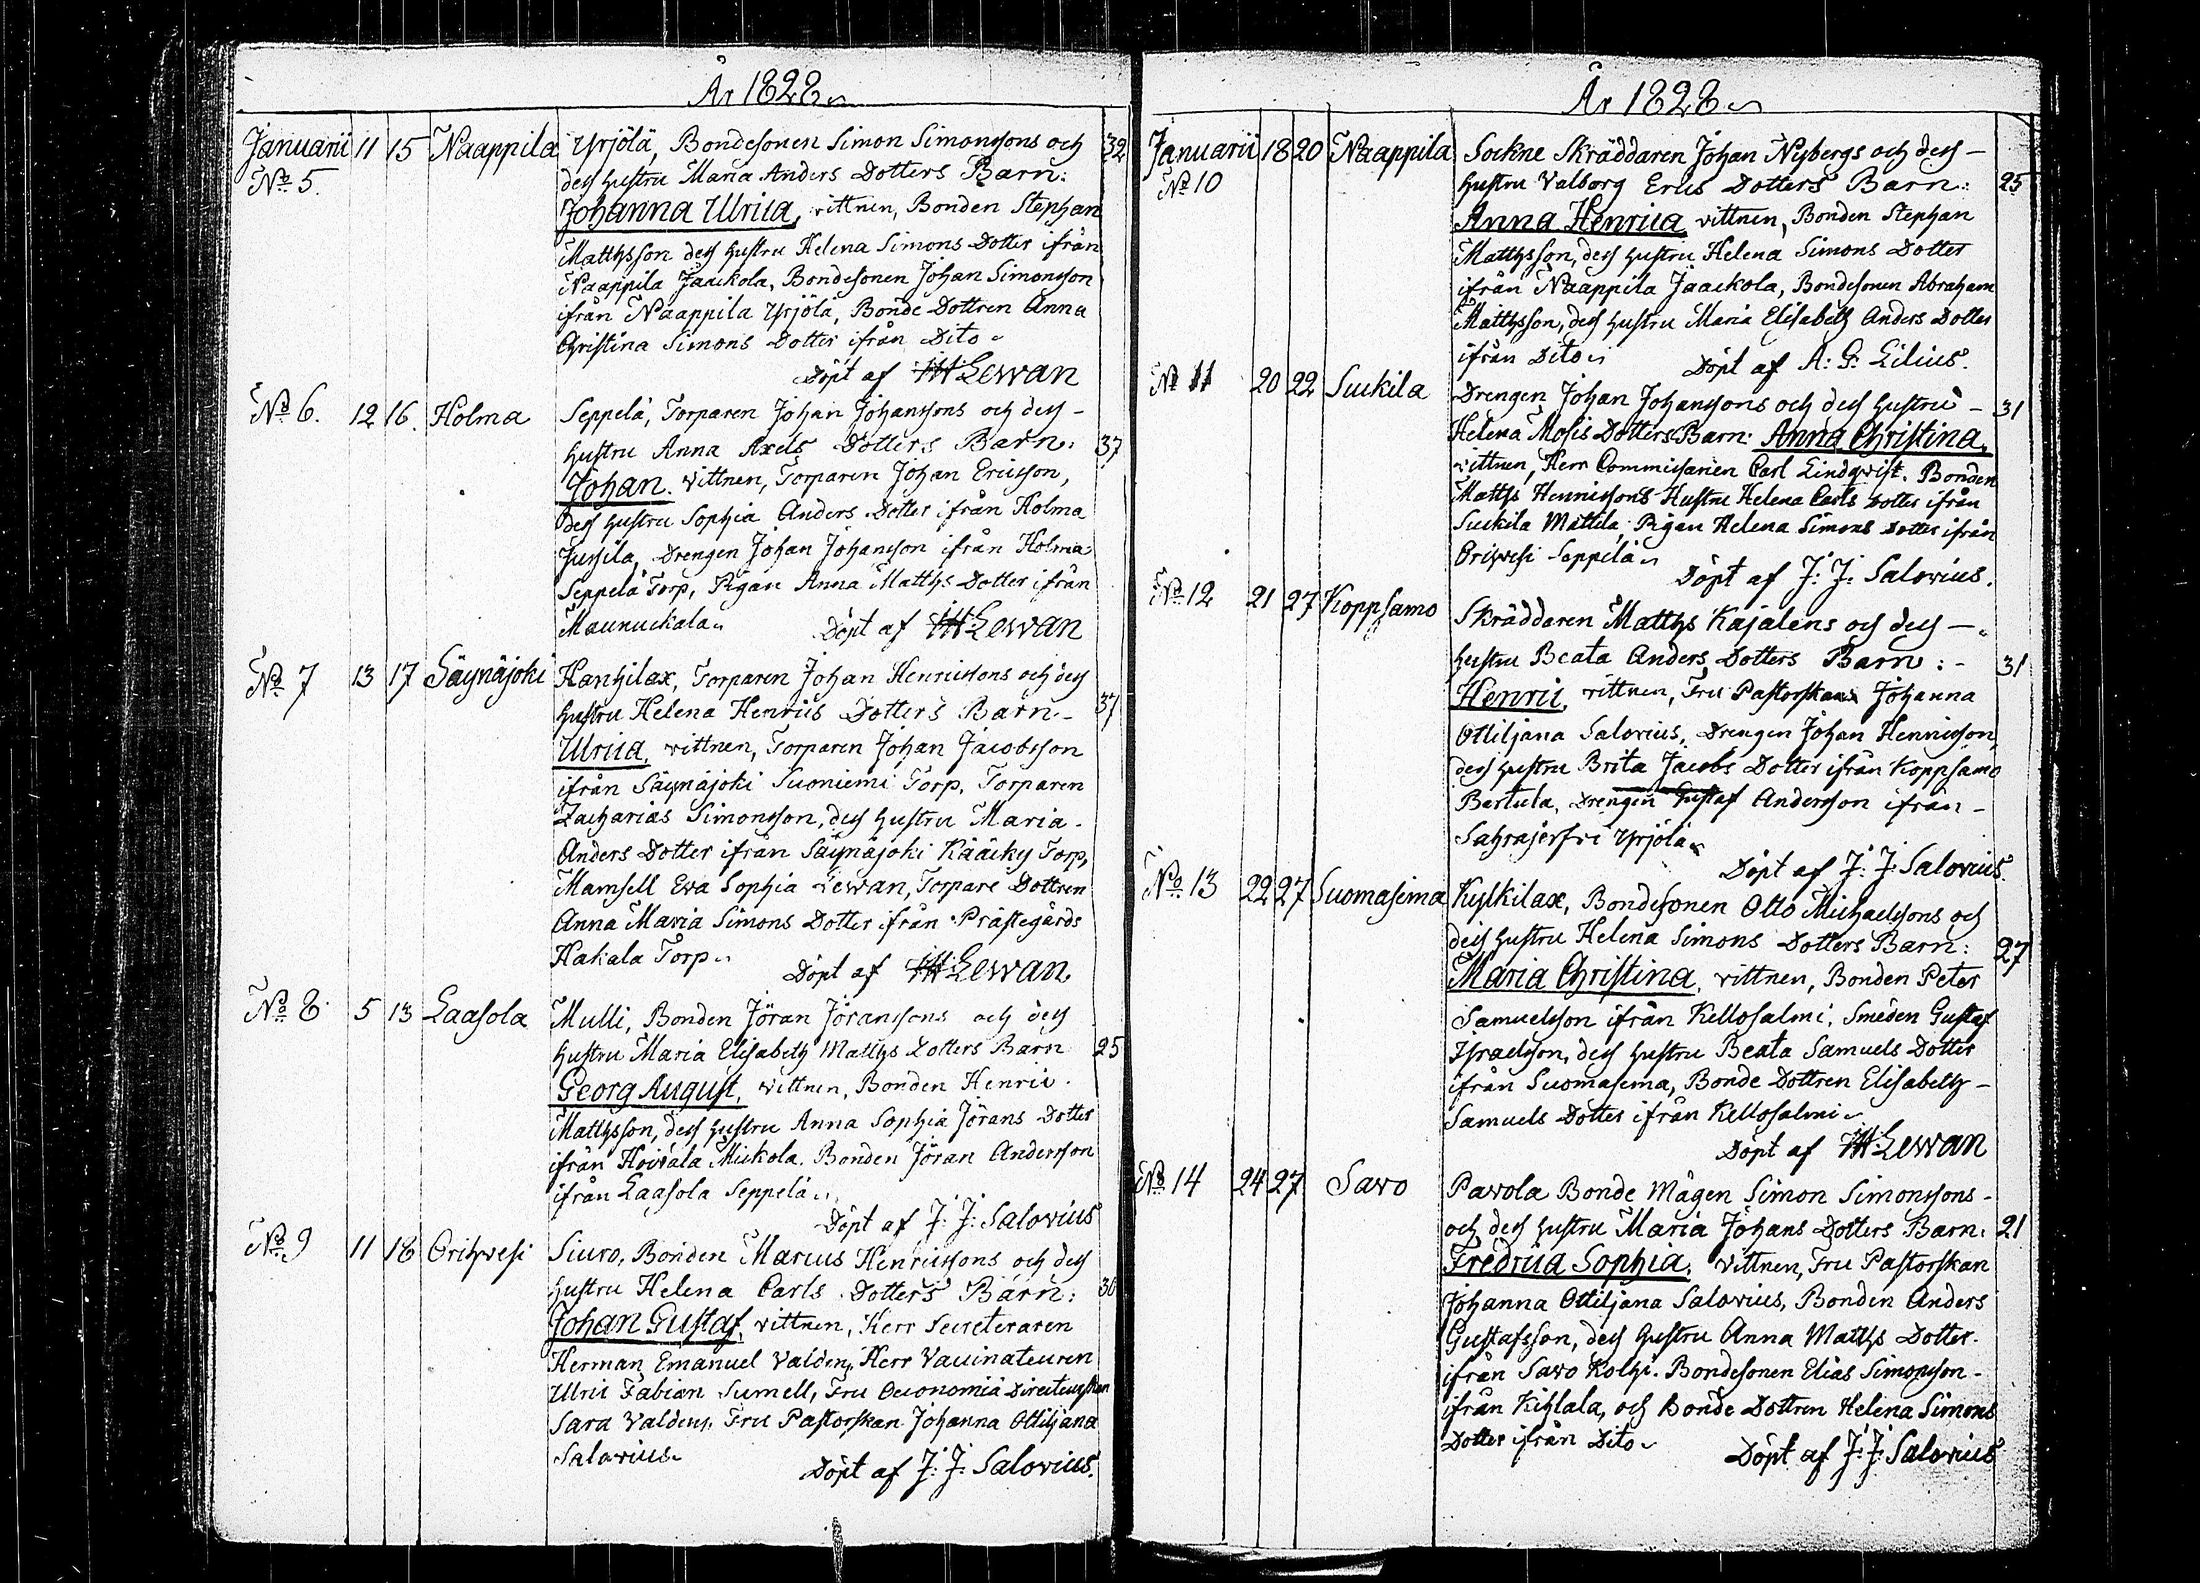 År 1828.
Januarii 11 15 Naappila Yrjölä, Bondesonen Simon Simonssons och 32
No 5. dess hustru Maria Anders Dotters Barn:
Johanna Ulrica, vittnen, Bonden Stephan
Matthsson dess hustru Helena Simons Dotter ifrån
Naappila Jaackola, Bondesonen Johan Simonsson
ifrån Naappila Yrjölä, Bonde Dottren Anna
Christina Simons Dotter ifrån Dito.
Döpt af Lewan
No 6. 12 16. Holma Seppelä, Torparen Johan Johanssons och dess -
hustru Anna Axels Dotters Barn: 37
Johan. vittnen, Torparen Johan Ericsson,
dess hustru Sophia Anders Dotter ifrån Holma
Jussila, Drengen Johan Johansson ifrån Holma
Seppelä Torp, Pigan Anna Matths Dotter ifrån
Maunuckala. Döpt af Lewan
No 7 13 17 Säynäjoki Hanhilax, Torparen Johan Henricssons och dess
hustru Helena Henrics Dotters Barn - 37
Ulrica, vittnen, Torparen Johan Jacobsson
ifrån Säynäjoki Suoniemi Torp, Torparen
Zacharias Simonsson, dess hustru Maria
Anders Dotter ifrån Säynäjoki Kääcky Torp,
Mamsell Eva Sophia Lewan, Torpare Dottren
Anna Maria Simons Dotter ifrån Prästegårds
Hakala Torp. Döpt af Lewan.
No 8. 5 13 Laasola Mulli, Bonden Jöran Jöranssons och dess
hustru Maria Elisabeth Matths Dotters Barn 25
Georg August, vittnen, Bonden Henric
Matthsson, dess hustru Anna Sophia Jörans Dotter
ifrån Hoivala Mickola. Bonden Jöran Andersson
ifrån Laasola Seppelä.
Döpt af J: J: Salovius
No 9 11 18 Orihvesi Siuro, Bonden Marcus Henricssons och dess
hustru Helena Carls Dotters Barn: 30
Johan Gustaf, vittnen, Herr Secreteraren
Herman Emanuel Valdens, Herr Vaccinateuren
Ulric Fabian Sumell, Fru Oeconomiä Directeurskan
Sara Valdens, Fru Pastorskan Johanna Ottiljana
Salovius. Döpt af J: J: Salovius.
År 1828.
Januarii 18 20 Naappila Sockne Skräddaren Johan Nybergs och dess -
No 10 hustru Valborg Erics Dotters Barn: 25
Anna Henrica vittnen, Bonden Stephan
Matthsson, dess hustru Helena Simons Dotter
ifrån Naappila Jaackola, Bondesonen Abraham
Matthsson, dess hustru Maria Elisabeth Anders Dotter
ifrån Dito. Döpt af A: G: Lilius.
No 11 20 22 Suckila Drengen Johan Johanssons och dess hustru - 31
Helena Mosis Dotters Barn: Anna Christina,
vittnen, Herr Commissarien Carl Lindqvist. Bonden
Matths Henricssons Hustru Helena Carls Dotter ifrån
Suckila Mattila, Pigan Helena Simons Dotter ifrån
Orihvesi Seppilä.
Döpt af J: J: Salovius.
No 12 21 27 Koppsamo Skräddaren Matths Kajalens och dess -
hustru Beata Anders Dotters Barn: - 31
Henric, vittnen, Fru Pastorskan Johanna
Ottiljana Salovius, Drengen Johan Henricsson,
dess hustru Brita Jacobs Dotter ifrån Koppsamo
Bertula, Drengen Gustaf Andersson ifrån -
Sahrajerfvi Yrjölä.
Döpt af J: J: Salovius
No 13 22 27 Suomasema Kylkilax, Bondesonen Otto Michaelssons och
dess hustru Helena Simons Dotters Barn: 27
Maria Christina, vittnen, Bonden Peter
Samuelsson ifrån Kellosalmi, Smeden Gustaf
Israelsson, dess hustru Beata Samuels Dotter
ifrån Suomasema, Bonde Dottren Elisabeth -
Samuels Dotter ifrån Kellosalmi.
Döpt af Lewan
No 14 24 27 Savo Pavola Bonde Mågen Simon Simonssons -
och dess hustru Maria Johans Dotters Barn: 21
Fredrica Sophia. vittnen, Fru Pastorskan
Johanna Ottiljana Salovius, Bonden Anders
Gustafsson, dess hustru Anna Matths Dotter
ifrån Savo Kolhi. Bondesonen Elias Simonsson -
ifrån Kihlala, och Bonde Dottren Helena Simons
Dotter ifrån Dito. Döpt af J: J: Salovius